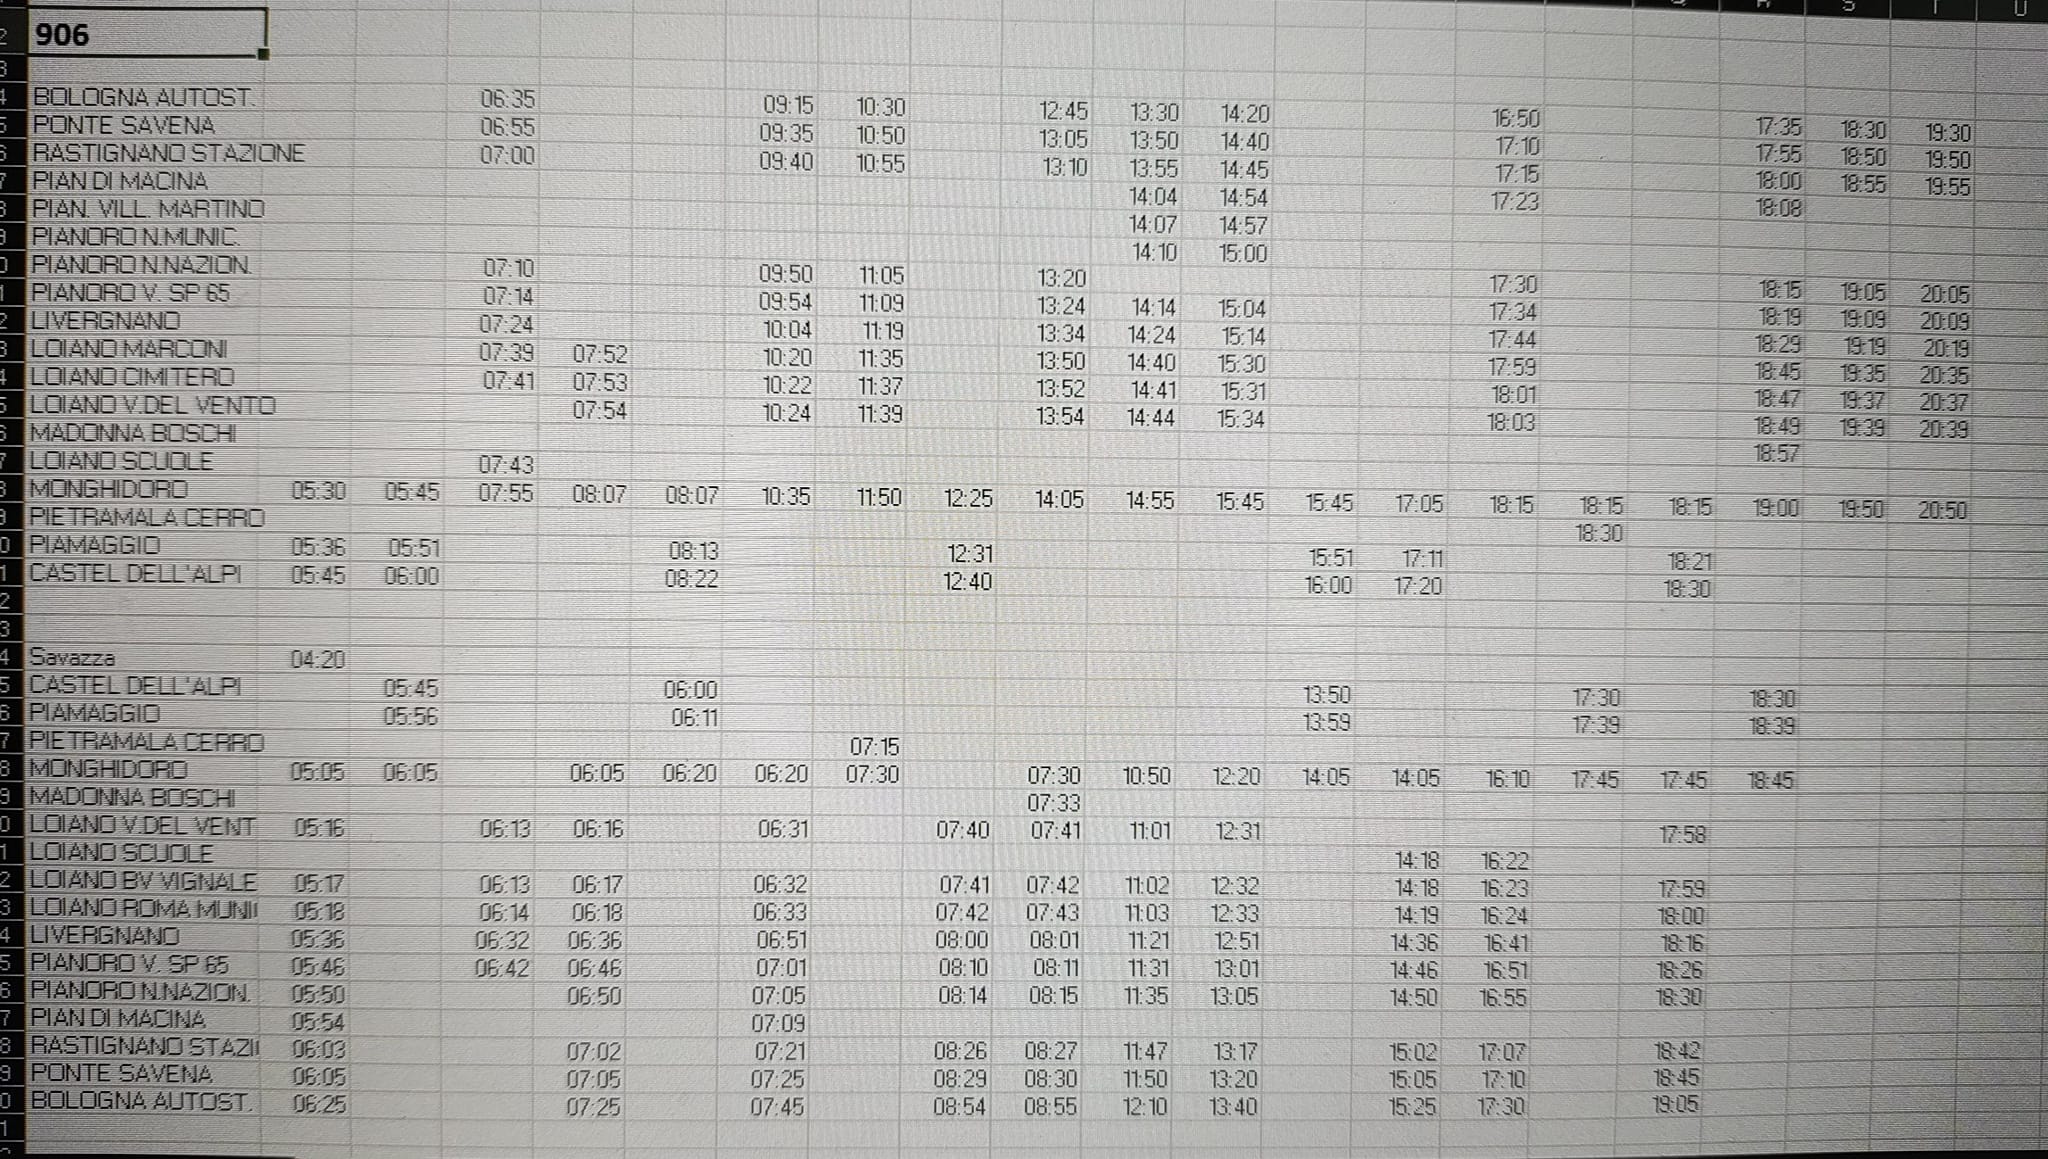 R S T U
906
BOLOGNA AUTOST. 06:35 09:15 10:30 12:45 13:30 14:20 16:50 17:35 18:30 19:30
PONTE SAVENA 06:55 09:35 10:50 13:05 13:50 14:40 17:10 17:55 18:50 19:50
RASTIGNANO STAZIONE 07:00 09:40 10:55 13:10 13:55 14:45 17:15 18:00 18:55 19:55
PIAN DI MACINA 14:04 14:54 17:23 18:08
PIAN. VILL. MARTINO 14:07 14:57
PIANORO N.MUNIC. 14:10 15:00
PIANORO N.NAZION. 07:10 09:50 11:05 13:20 17:30 18:15 19:05 20:05
PIANORO V. SP 65 07:14 09:54 11:09 13:24 14:14 15:04 17:34 18:19 19:09 20:09
LIVERGNANO 07:24 10:04 11:19 13:34 14:24 15:14 17:44 18:29 19:19 20:19
LOIANO MARCONI 07:39 07:52 10:20 11:35 13:50 14:40 15:30 17:59 18:45 19:35 20:35
LOIANO CIMITERO 07:41 07:53 10:22 11:37 13:52 14:41 15:31 18:01 18:47 19:37 20:37
LOIANO V.DEL VENTO 07:54 10:24 11:39 13:54 14:44 15:34 18:03 18:49 19:39 20:39
MADONNA BOSCHI 18:57
LOIANO SCUOLE 07:43
MONGHIDORO 05:30 05:45 07:55 08:07 08:07 10:35 11:50 12:25 14:05 14:55 15:45 15:45 17:05 18:15 18:15 18:15 19:00 19:50 20:50
PIETRAMALA CERRO 18:30
PIAMAGGIO 05:36 05:51 08:13 12:31 15:51 17:11 18:21
CASTEL DELL'ALPI 05:45 06:00 08:22 12:40 16:00 17:20 18:30
Savazza 04:20
CASTEL DELL'ALPI 05:45 06:00 13:50 17:30 18:30
PIAMAGGIO 05:56 06:11 13:59 17:39 18:39
PIETRAMALA CERRO 07:15
MONGHIDORO 05:05 06:05 06:05 06:20 06:20 07:30 07:30 10:50 12:20 14:05 14:05 16:10 17:45 17:45 18:45
MADONNA BOSCHI 07:33
LOIANO V.DEL VENT 05:16 06:13 06:16 06:31 07:40 07:41 11:01 12:31 17:58
LOIANO SCUOLE 14:18 16:22
LOIANO BV VIGNALE 05:17 06:13 06:17 06:32 07:41 07:42 11:02 12:32 14:18 16:23 17:59
LOIANO ROMA MUNI 05:18 06:14 06:18 06:33 07:42 07:43 11:03 12:33 14:19 16:24 18:00
LIVERGNANO 05:36 06:32 06:36 06:51 08:00 08:01 11:21 12:51 14:36 16:41 18:16
PIANORO V. SP 65 05:46 06:42 06:46 07:01 08:10 08:11 11:31 13:01 14:46 16:51 18:26
PIANORO N.NAZION. 05:50 06:50 07:05 08:14 08:15 11:35 13:05 14:50 16:55 18:30
PIAN DI MACINA 05:54 07:09
RASTIGNANO STAZI 06:03 07:02 07:21 08:26 08:27 11:47 13:17 15:02 17:07 18:42
PONTE SAVENA 06:05 07:05 07:25 08:29 08:30 11:50 13:20 15:05 17:10 18:45
BOLOGNA AUTOST. 06:25 07:25 07:45 08:54 08:55 12:10 13:40 15:25 17:30 19:05